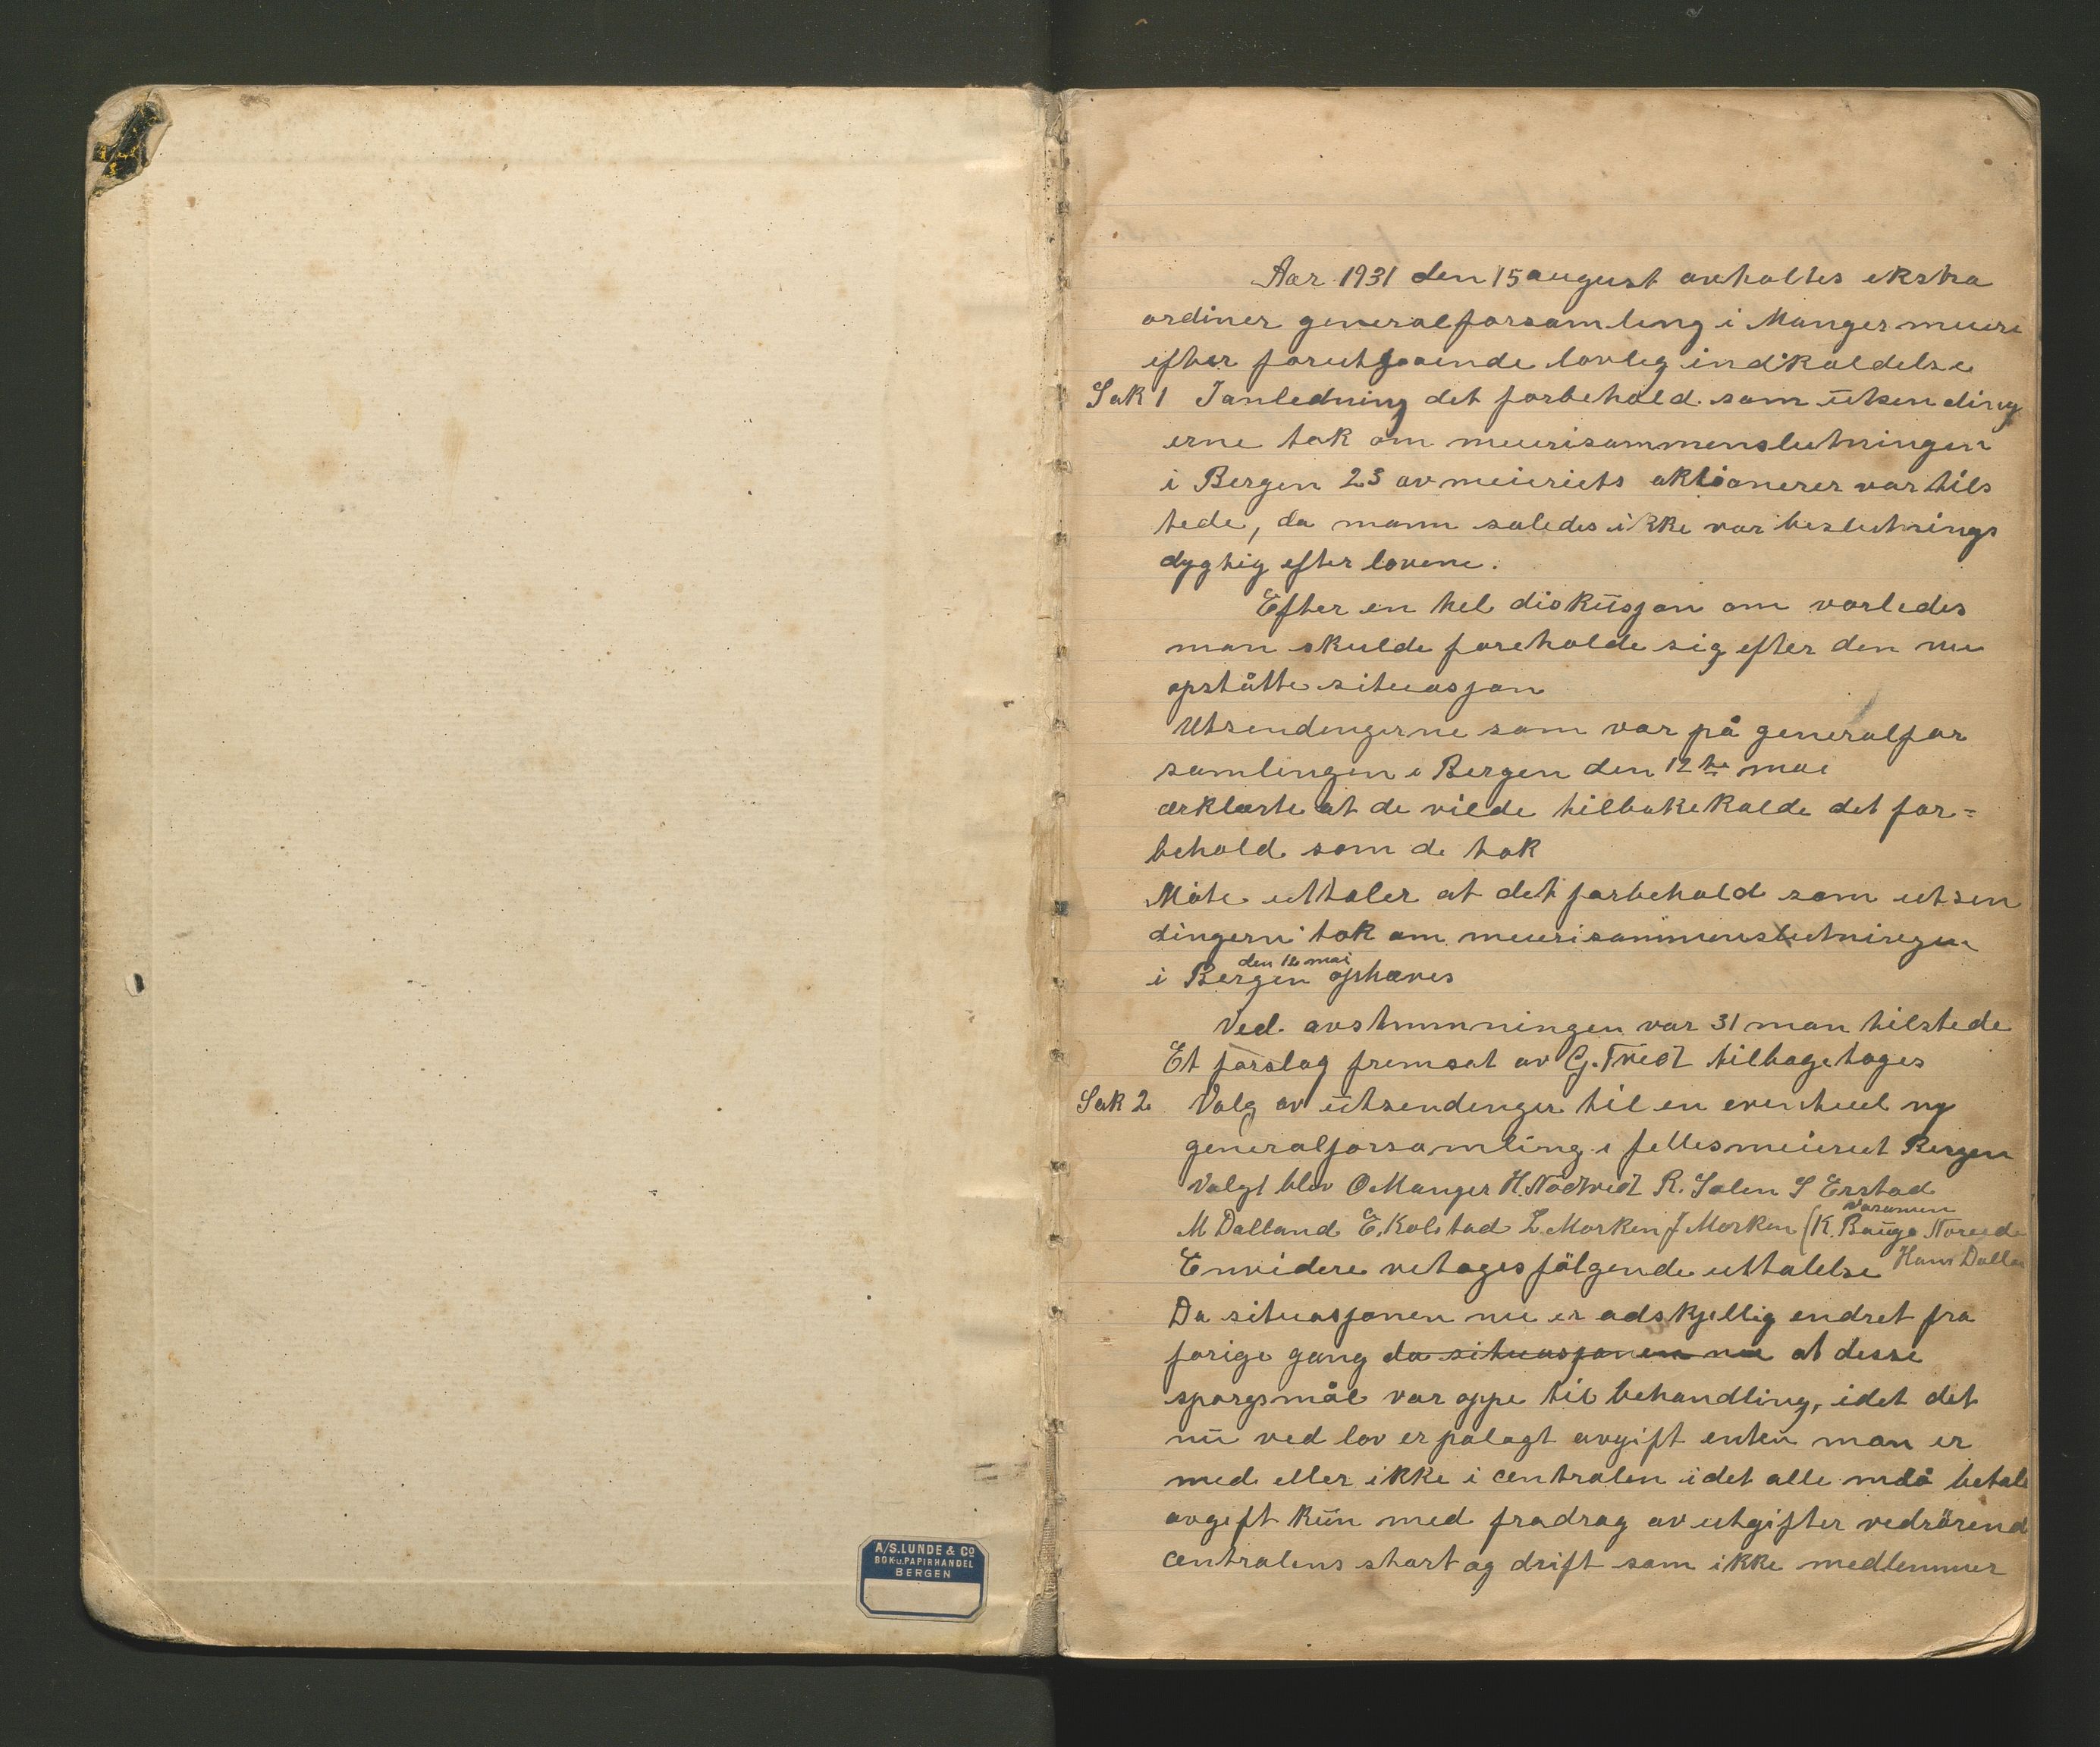 A/S. LUNDE & Cо
BOK- u. PAPIRHANDEL
BERGEN
Aar 1931 den 15 august avholtes ekstra
ordiner generalforsamling i Manger meieri
efter forutgaaende lovlig indkaldelse
Sak 1 I anledning det forbehold som utsending
erne tok om meierisammenslutningen
i Bergen 23 av meieriets aktionerer var tils
tede, da mann saledes ikke var beslutnings
dygtig efter lovene.
Efter en hel diskusjon om vorledes
man skulde foreholde sig efter den nu
opståtte situasjon
Utsendingerne som var på generalfor
samlingen i Bergen den 12te mai
ærklarte at de vilde tilbakekalde det for=
behold som de tok
Møte uttaler at det forbehold som utsen
dingerne tok om meierisammenslutningen
den 12 mai
i Bergen ophæves
Ved avstemningen var 31 man tilstede
Et forslag fremsat av G. Tveit tilbagetages
Sak 2 Valg av utsendinger til en eventuel ny
generalforsamling i fellesmeieriet Bergen
Valgt blev O Manger H. Nodtveit R. Solen S Erstad
Varamen
M Dalland E. Kolstad L Morken J Morken (K. Bauge
Hans
Envidere vetages følgende uttalelse
Da situasjonen nu er adskjellig endret fra
forige gang da situasjonen nu at desse
spørgsmål var oppe til behandling, idet det
nu ved lov er palagt avgift enten man er
med eller ikke i centralen idet alle må betale
avgift kun med fradrag av utgifter vedrörend
centralens start og drift som ikke medlemmer